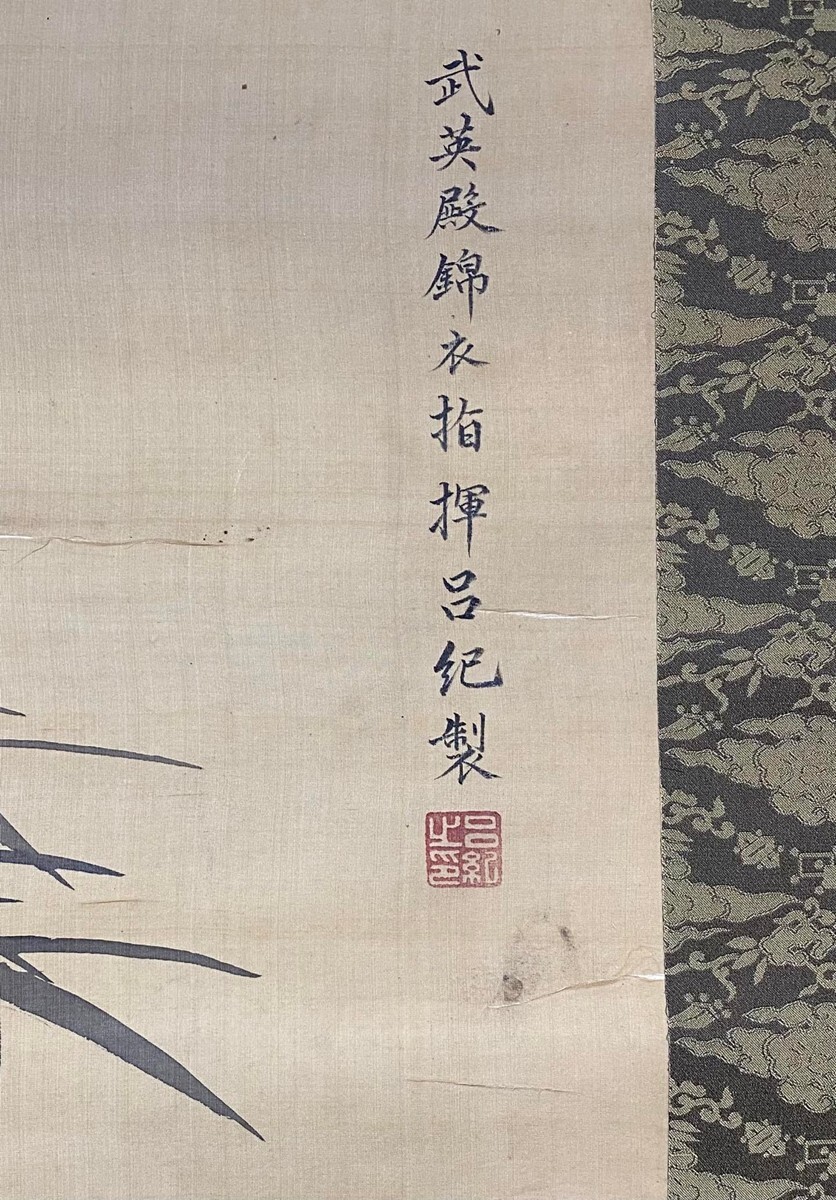 武英殿錦衣指揮呂紀製
呂紀之印